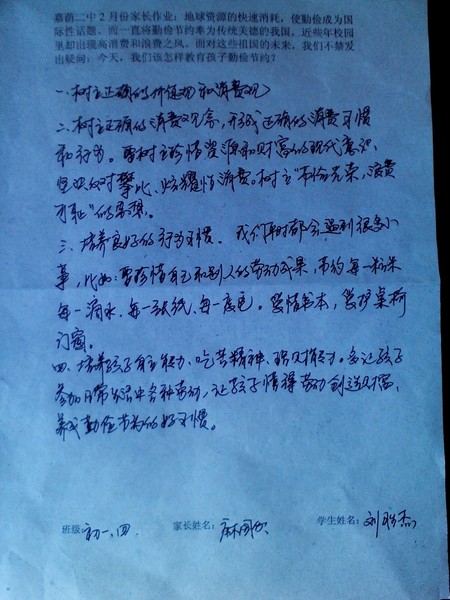 嘉荫二中 2 月份家长作业：地球资源的快速消耗，使勤俭成为国
际性话题。而一直将勤俭节约奉为传统美德的我国，近些年校园
里却出现高消费和浪费之风。面对这些祖国的未来，我们不禁发
出疑问：今天，我们该怎样教育孩子勤俭节约？
一、树立正确的价值观和消费观
二、树立正确的消费观念，形成正确的消费习惯
和行为。要树立珍惜资源和财富的现代意识，
坚决反对攀比、炫耀性消费。树立“节俭光荣，浪费
可耻”的思想。
三、培养良好的行为习惯。我们平时都会遇到很多小
事，比如：要珍惜自己和别人的劳动成果，节约每一粒米
每一滴水、每一张纸、每一度电。爱惜书本，爱护桌椅
门窗。
四、培养孩子自主能力、吃苦精神、多让孩子
参加日常生活中各种劳动，让孩子懂得劳动创造财富，
养成勤俭节约的好习惯。
班级：初一、四 家长姓名： 学生姓名：刘杰